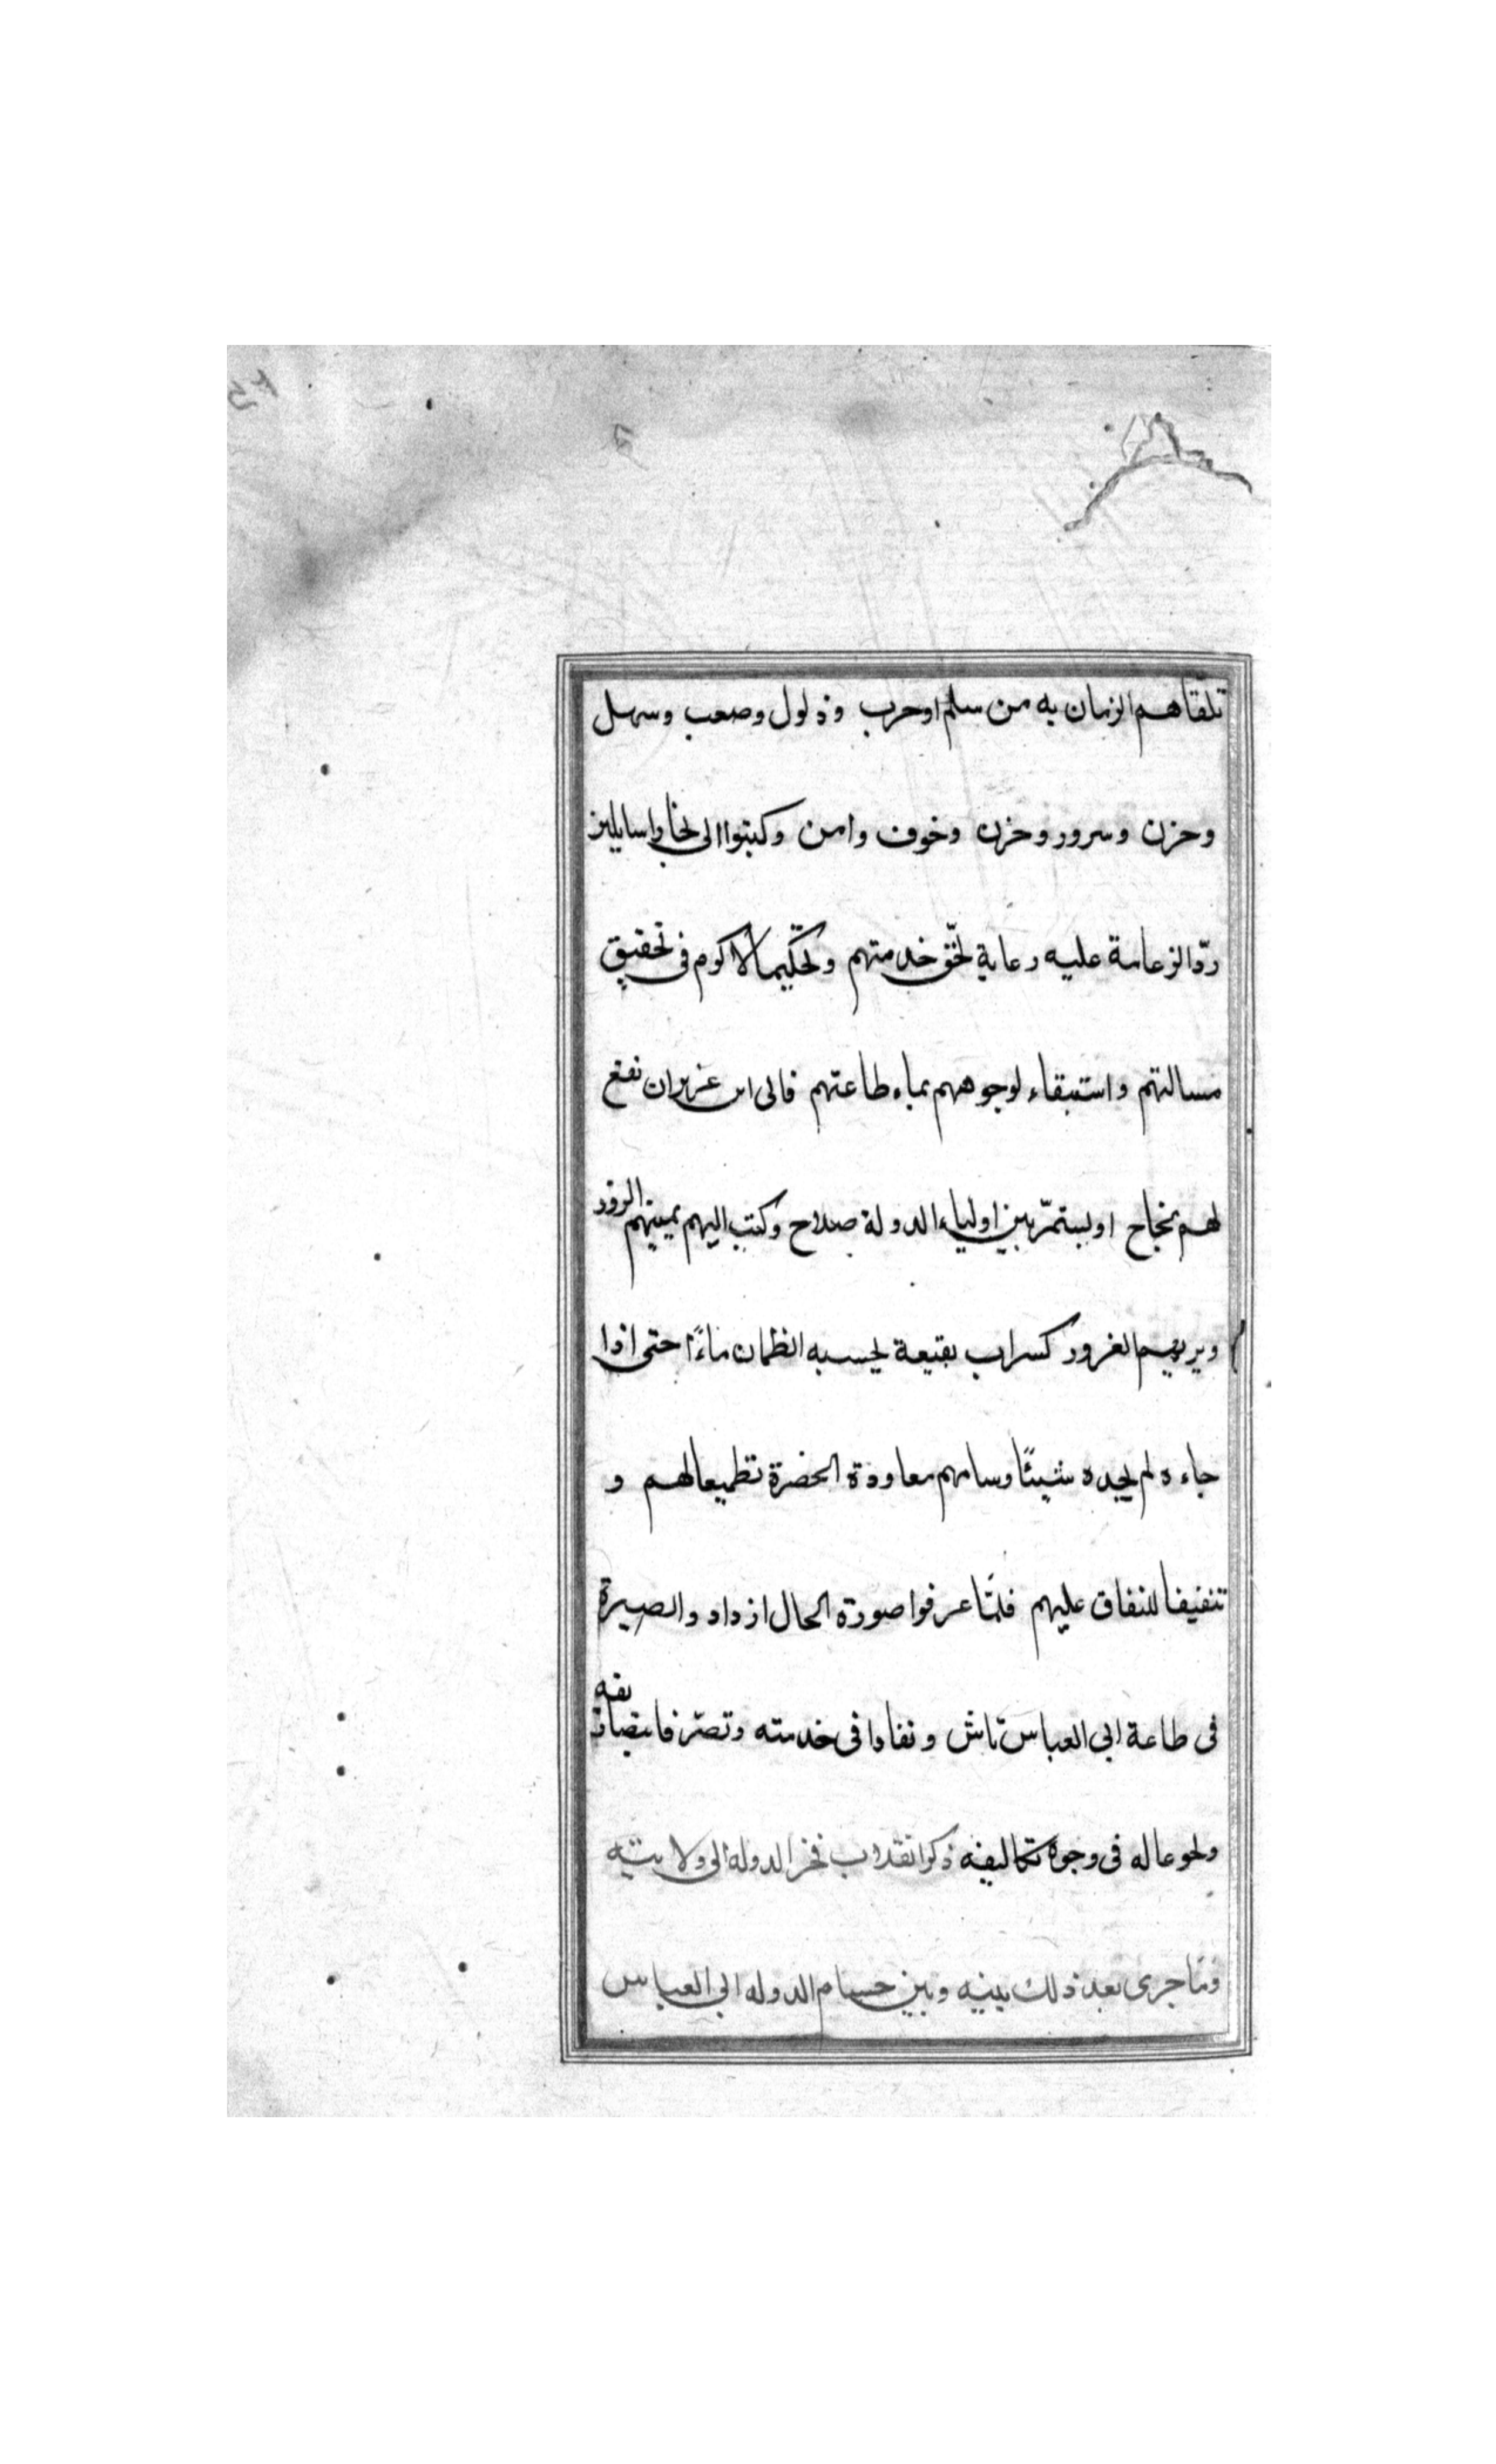 تلقّاهم الزمان به من سلم اوحرب وذلول وصعب وسهل
وحزن وسرور وحزن وخوف وامن وكتبوا الى بخارا سايلين
ردّ الزعامة عليه رعاية لحّق خدمتهم وتحكّيما للاكرم فى تحقيق
مسالتهم واستبقاء لوجوههم بماء طاعتهم فابى ابن عزيز ان نفع
لهم نجاح او يستمّر بين اولياء الدولة صلاح وكتب اليهم يمنيهم الزور
ويريهم الغرور كسراب بقيعة يحسبه الظمان ماءً حتى اذا
جاءه لم يجده شيئًا وسامهم معاودة الحضرة تطميعا لهم و
تنفيفا للنفاق عليهم فلمّا عرفوا صورة الحال ازدادوا بصيرة
فى طاعة ابى العباس تاش ونفاذا فى خدمته وتصرّفا بتصاريفه
ونحوعا له فى وجوه تكاليفه ذكر انقلاب فخر الدوله الى ولايته
وما جرى بعد ذلك بينه وبين حسام الدوله ابى العباس